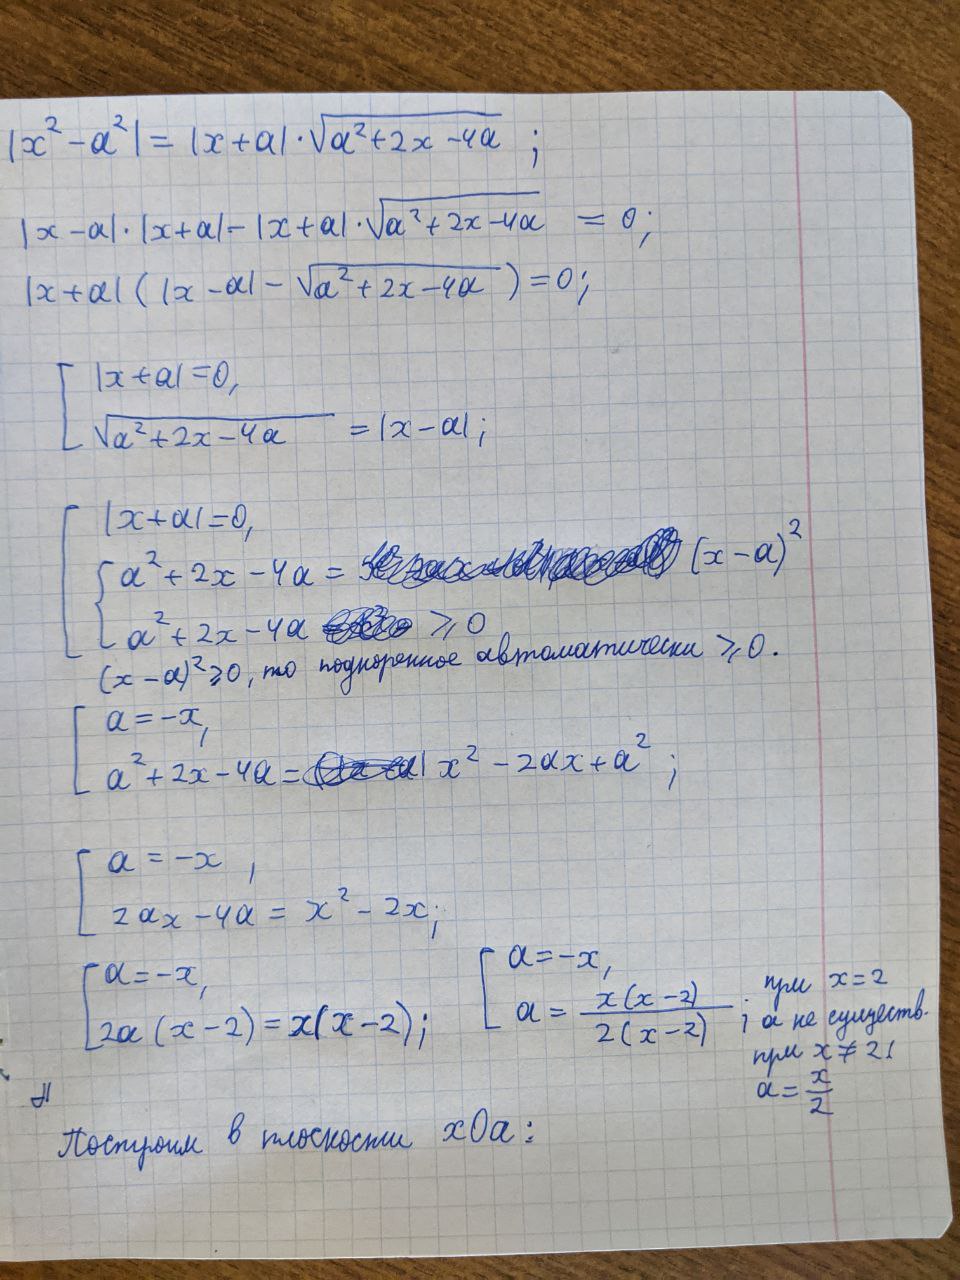 |x² - a²| = |x+a| · √(a²+2x-4a) ;
|x-a|·|x+a| - |x+a|·√(a²+2x-4a) = 0;
|x+a| (|x-a| - √(a²+2x-4a)) = 0;
[ |x+a|=0,
√(a²+2x-4a) = |x-a|;
[ |x+a|=0,
{ a²+2x-4a = (x-a)²
a²+2x-4a ⩾ 0
(x-a)²⩾0, то подкоренное автоматически ⩾0.
[ a=-x,
a²+2x-4a = x²-2ax+a² ;
[ a = -x ,
2ax-4a = x²-2x;
[ a=-x,
2a(x-2) = x(x-2);
[ a=-x,
a = x(x-2)/2(x-2) ;
при x=2
a не существ.
при x≠2:
a = x/2
Построим в плоскости xOa: